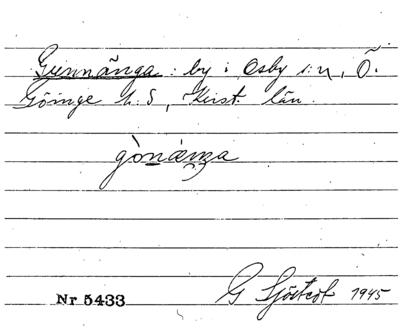 Gunnånga: by i Osby s:n, Ö.
Göinge h:d, Krist. län.
Nr 5433
G Sjöstedt 1945